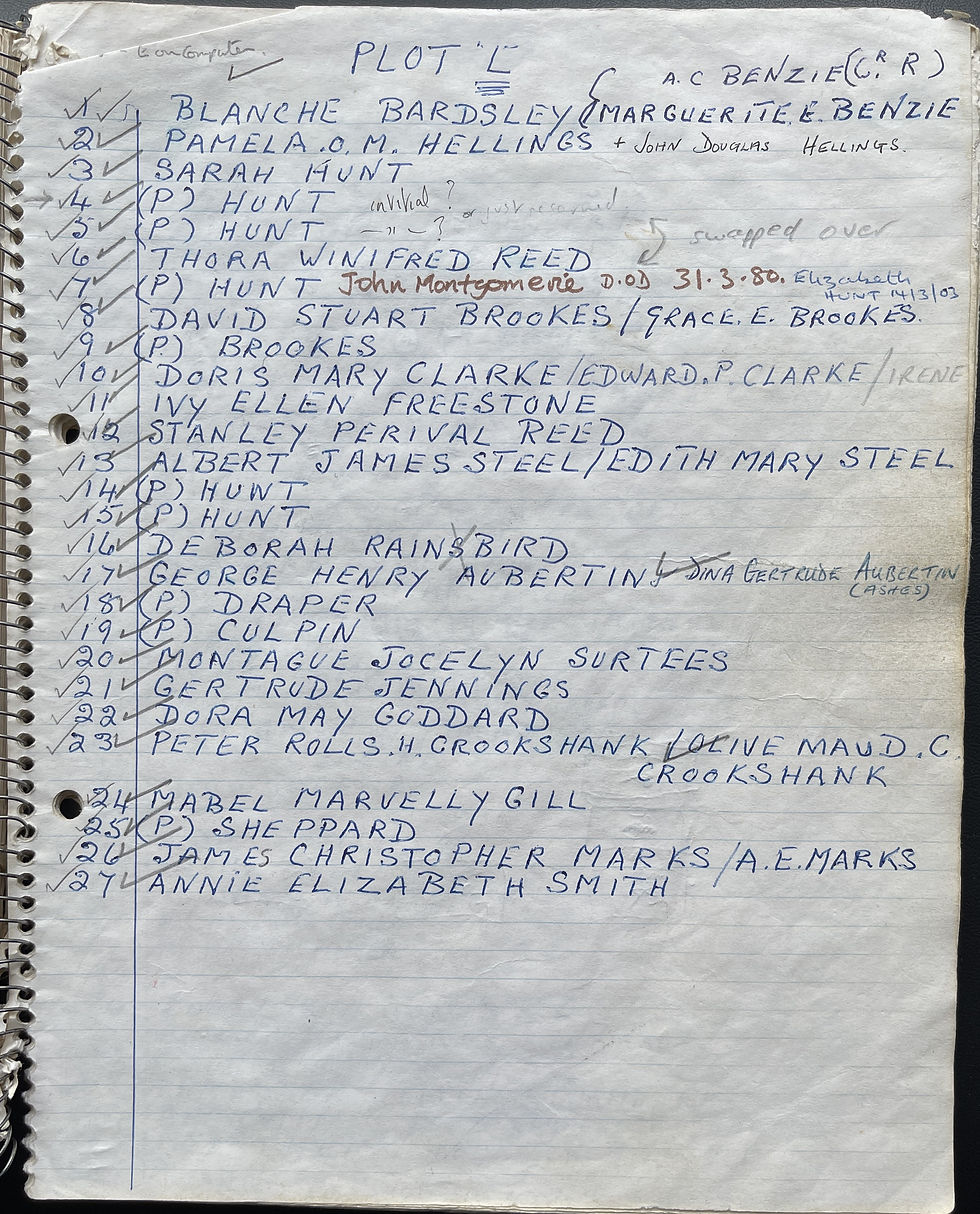 on computer.
PLOT "L"
A.C BENZIE (C.R R)
1 BLANCHE BARDSLEY / MARGUERITE. E. BENZIE
2 PAMELA. O. M. HELLINGS + JOHN DOUGLAS HELLINGS.
3 SARAH HUNT
4 (P) HUNT initial ? or just reserved.
5 (P) HUNT — " — ? swapped over
6 THORA WINIFRED REED
7 (P) HUNT John Montgomerie D.OD 31.3.80. Elizabeth
HUNT 14/3/03
8 DAVID STUART BROOKES / GRACE. E. BROOKES.
9 (P.) BROOKES
10 DORIS MARY CLARKE / EDWARD. P. CLARKE / IRENE
11 IVY ELLEN FREESTONE
12 STANLEY PERIVAL REED
13 ALBERT JAMES STEEL / EDITH MARY STEEL
14 (P) HUNT
15 (P) HUNT
16 DEBORAH RAINSBIRD
17 GEORGE HENRY AUBERTIN / DINA GERTRUDE AUBERTIN
(ASHES)
18 (P) DRAPER
19 (P) CULPIN
20 MONTAGUE JOCELYN SURTEES
21 GERTRUDE JENNINGS
22 DORA MAY GODDARD
23 PETER ROLLS. H. CROOKSHANK / OLIVE MAUD. C.
CROOKSHANK
24 MABEL MARVELLY GILL
25 (P) SHEPPARD
26 JAMES CHRISTOPHER MARKS / A.E. MARKS
27 ANNIE ELIZABETH SMITH